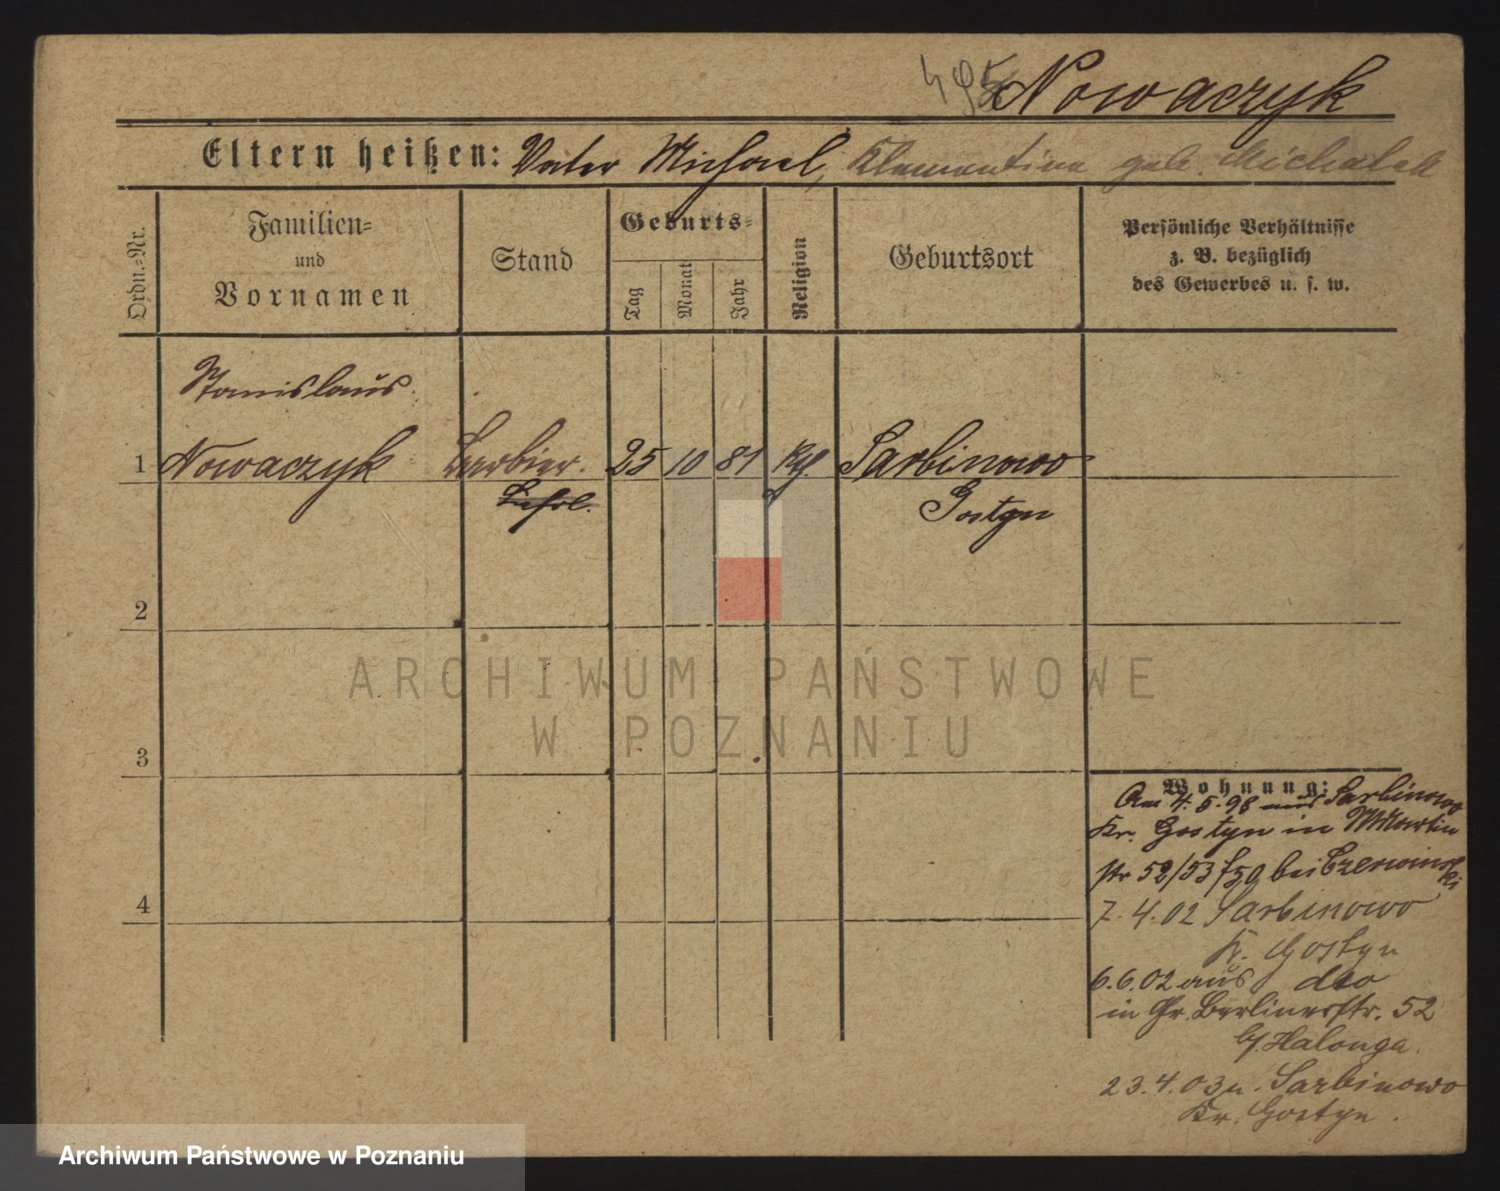 495 Nowaczyk
Eltern heißen: Vater Michael, Klementina geb. Michalak
Ordn.-Nr.
Familien-
und
Vornamen
Stand
Geburts-
Tag
Monat
Jahr
Religion
Geburtsort
Persönliche Verhältnisse
z. B. bezüglich
des Gewerbes u. s. w.
Stanislaus
1 Nowaczyk Barbier. 25 10 81 kth. Sarbinowo
Lehrl. Gostyn
2
3
4
Wohnung:
Am 4.5.98 aus Sarbinowo
Kr. Gostyn in
str 52/53 bei Czerwinski
7.4.02 Sarbinowo
Kr. Gostyn
6.6.02 aus dto
in Gr. Berlinerstr. 52
b/ Halonga.
23.4.03 n. Sarbinowo
Kr. Gostyn.
ARCHIWUM PAŃSTWOWE
W POZNANIU
Archiwum Państwowe w Poznaniu